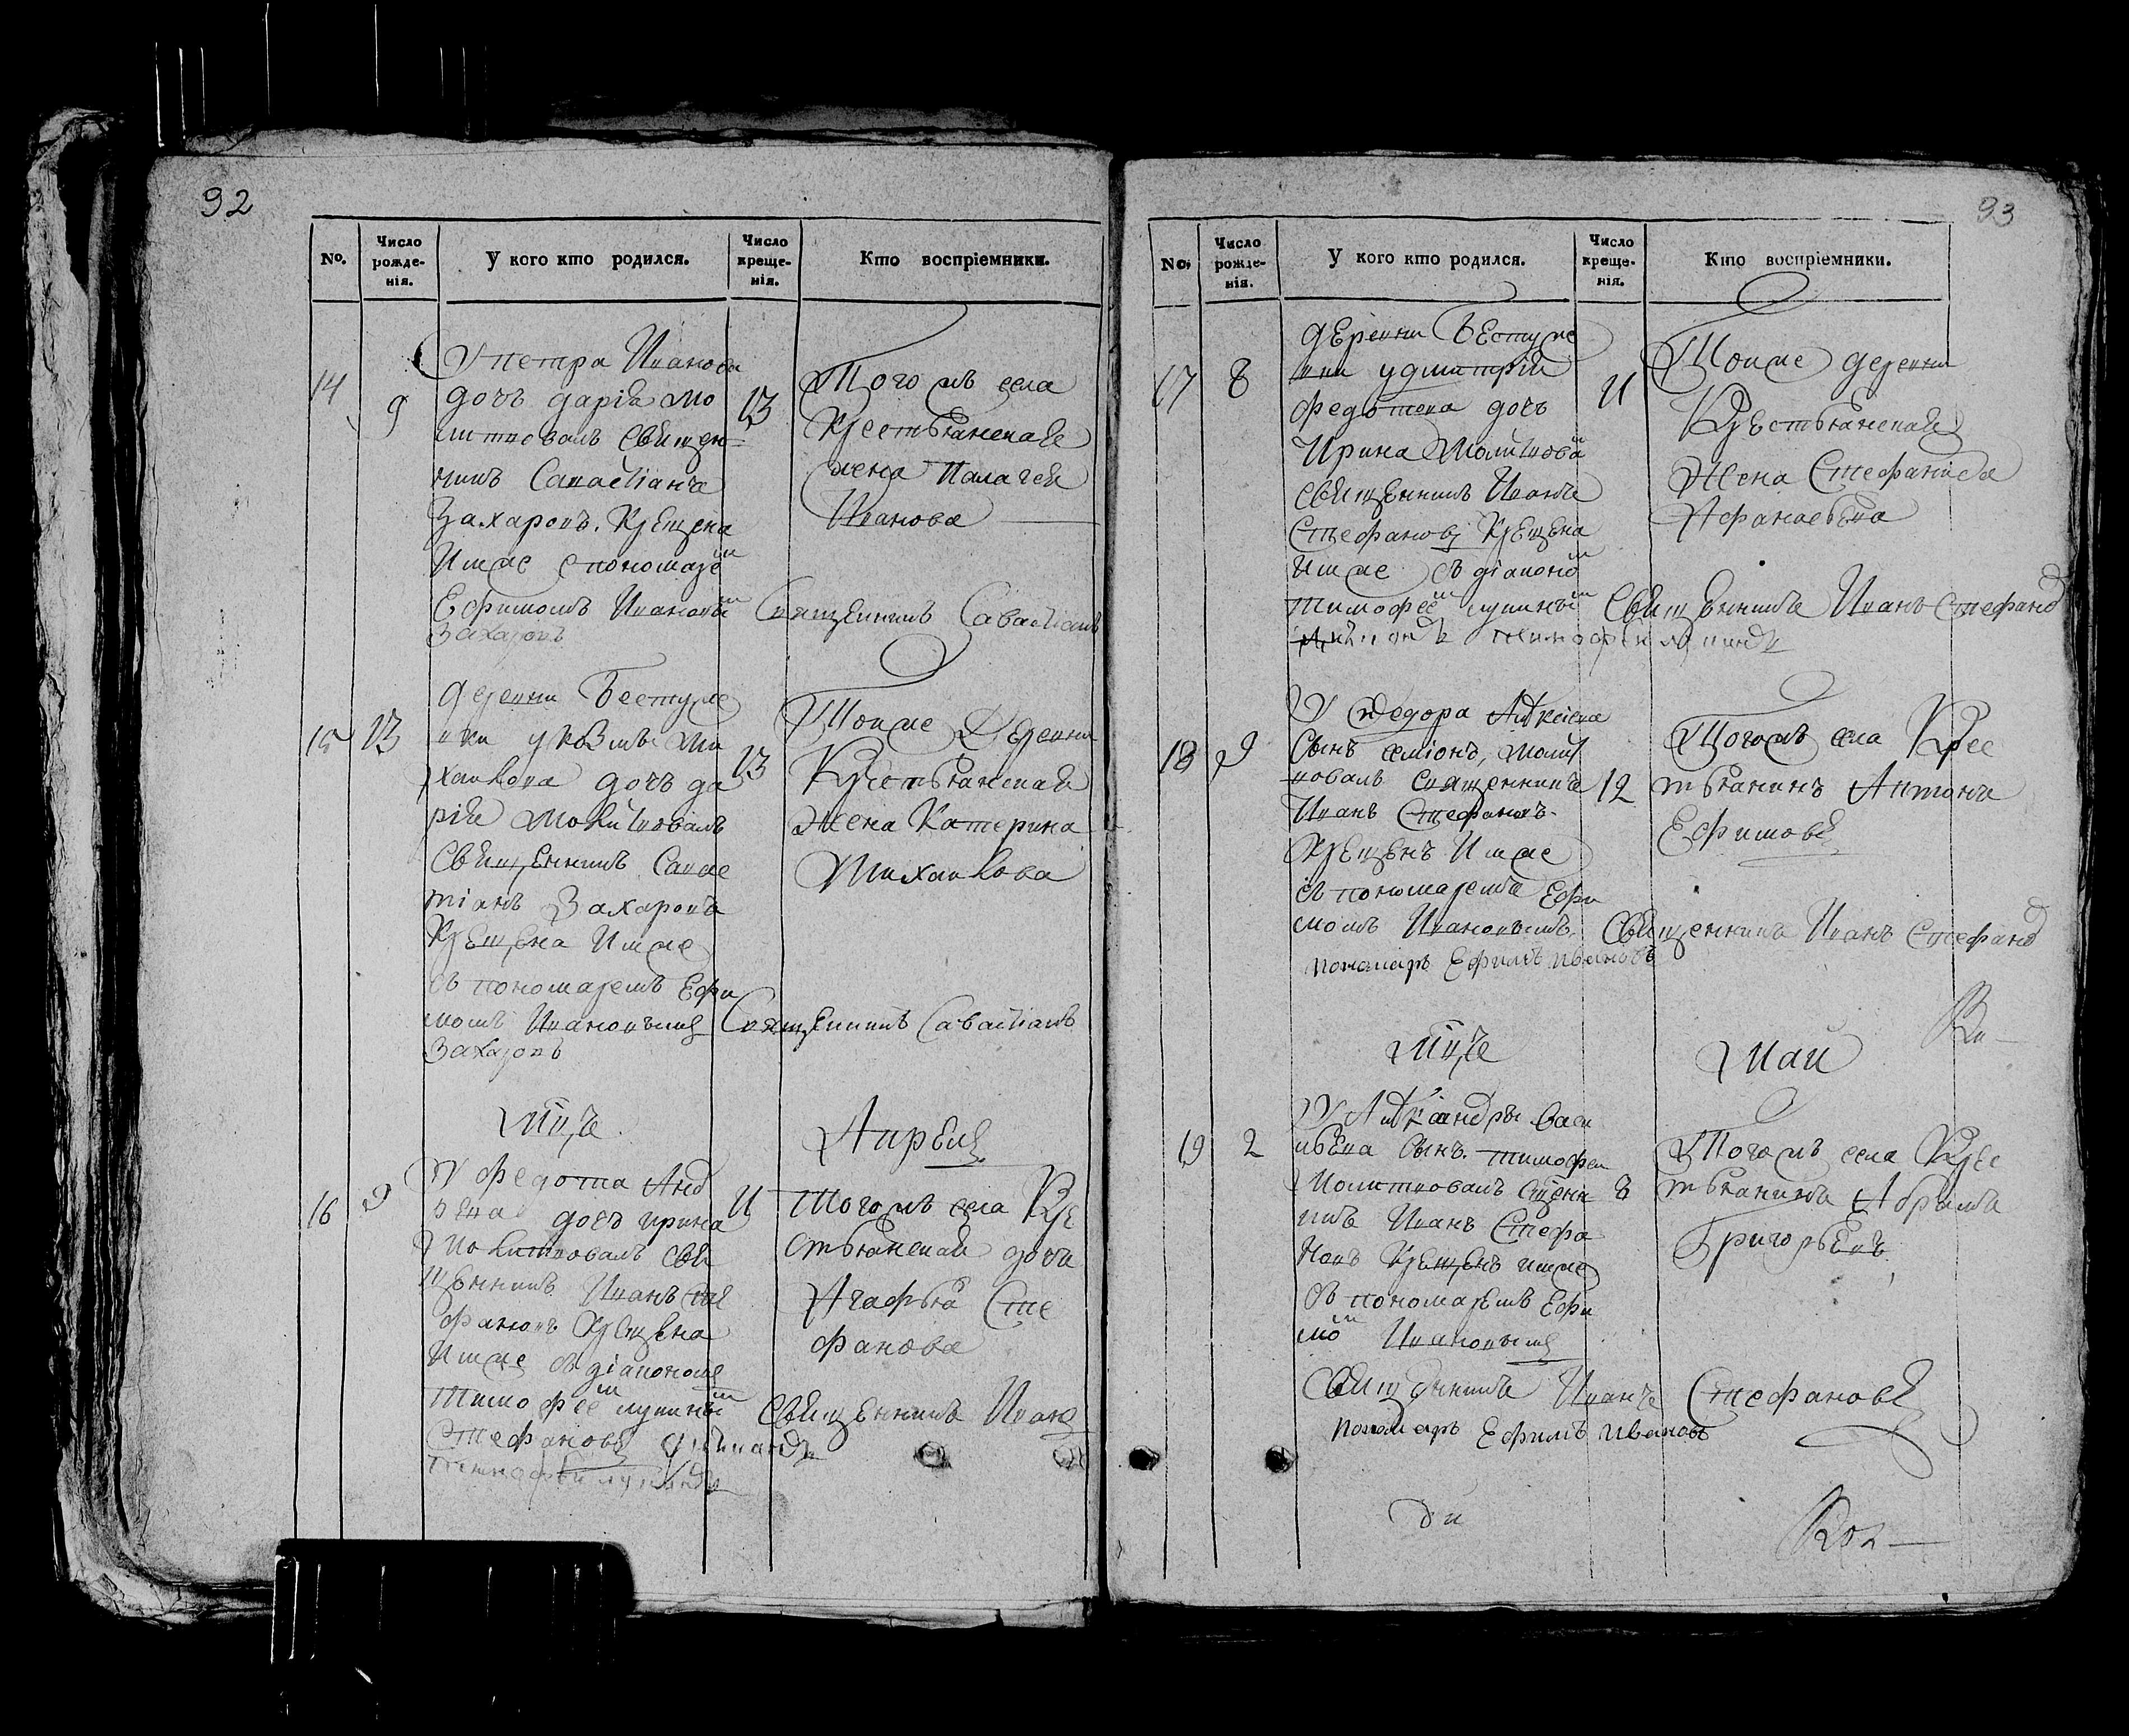 92
No.
Число рожде-нія.
У кого кто родился.
Число креще-нія.
Кто воспріемники.
14
9
У петра Иванова
дочь дарія мо
литвовалъ Священ
никъ Савастіанъ
Захаровъ. Крещена
Имже с пономарем
Ефимомъ Ивановым
13
Того жъ села
Крестьянская
жена Палагея
Иванова
Священникъ Савастіанъ
Захаровъ
15
13
деревни Бестуже
вки у Козмы Ми
хайлова дочь да
рія Молитвовалъ
Священникъ Савас
тіанъ Захаровъ
Крещена Имже
съ пономаремъ Ефи
момъ Ивановымъ
13
Тойже Деревни
Крестьянская
Жена Катерина
Михайлова
Священникъ Савастіанъ
Захаровъ
Мцъ
Апрель
16
9
У федота Анд
реева дочь ирина
Молитвовалъ Свя
щенникъ Иванъ Сте
фановъ Крещена
Имже съ діакономъ
Тимофеем
11
Того жъ села Кре
стьянская дочь
Агафья Сте
фанова
Священникъ Иванъ
Стефановъ
93
No.
Число рожде-нія.
У кого кто родился.
Число креще-нія.
Кто воспріемники.
17
8
деревни Бестуже
вки у дмитрія
федотева дочь
Ирина Молитвова
Священникъ Иванъ
Стефановъ Крещена
Имже съ діаконом
Тимофеем
11
Тойже деревни
Крестьянская
Жена Стефанида
Афанасьева
Священникъ Иванъ Стефановъ
18
9
У Федора Алексеева
Сынъ семіонъ, Молит
вовалъ Священникъ
Иванъ Стефановъ.
Крещенъ Имже
съ пономаремъ Ефи
момъ Ивановымъ.
12
Того жъ села Крес
тьянинъ Антонъ
Ефимовъ
Священникъ Иванъ Стефановъ
пономарь Ефимъ Ивановъ
Мцъ
Май
19
2
У Александры Васи
льева Сынъ. тимофеи
Молитвовалъ Сщени
къ Иванъ Стефа
новъ Крещенъ имже
съ пономаремъ Ефи
мом Ивановымъ
8
Того жъ села Крес
тьянинъ Абрамъ
Григорьевъ
Священникъ Иванъ Стефановъ
пономарь Ефимъ Ивановъ